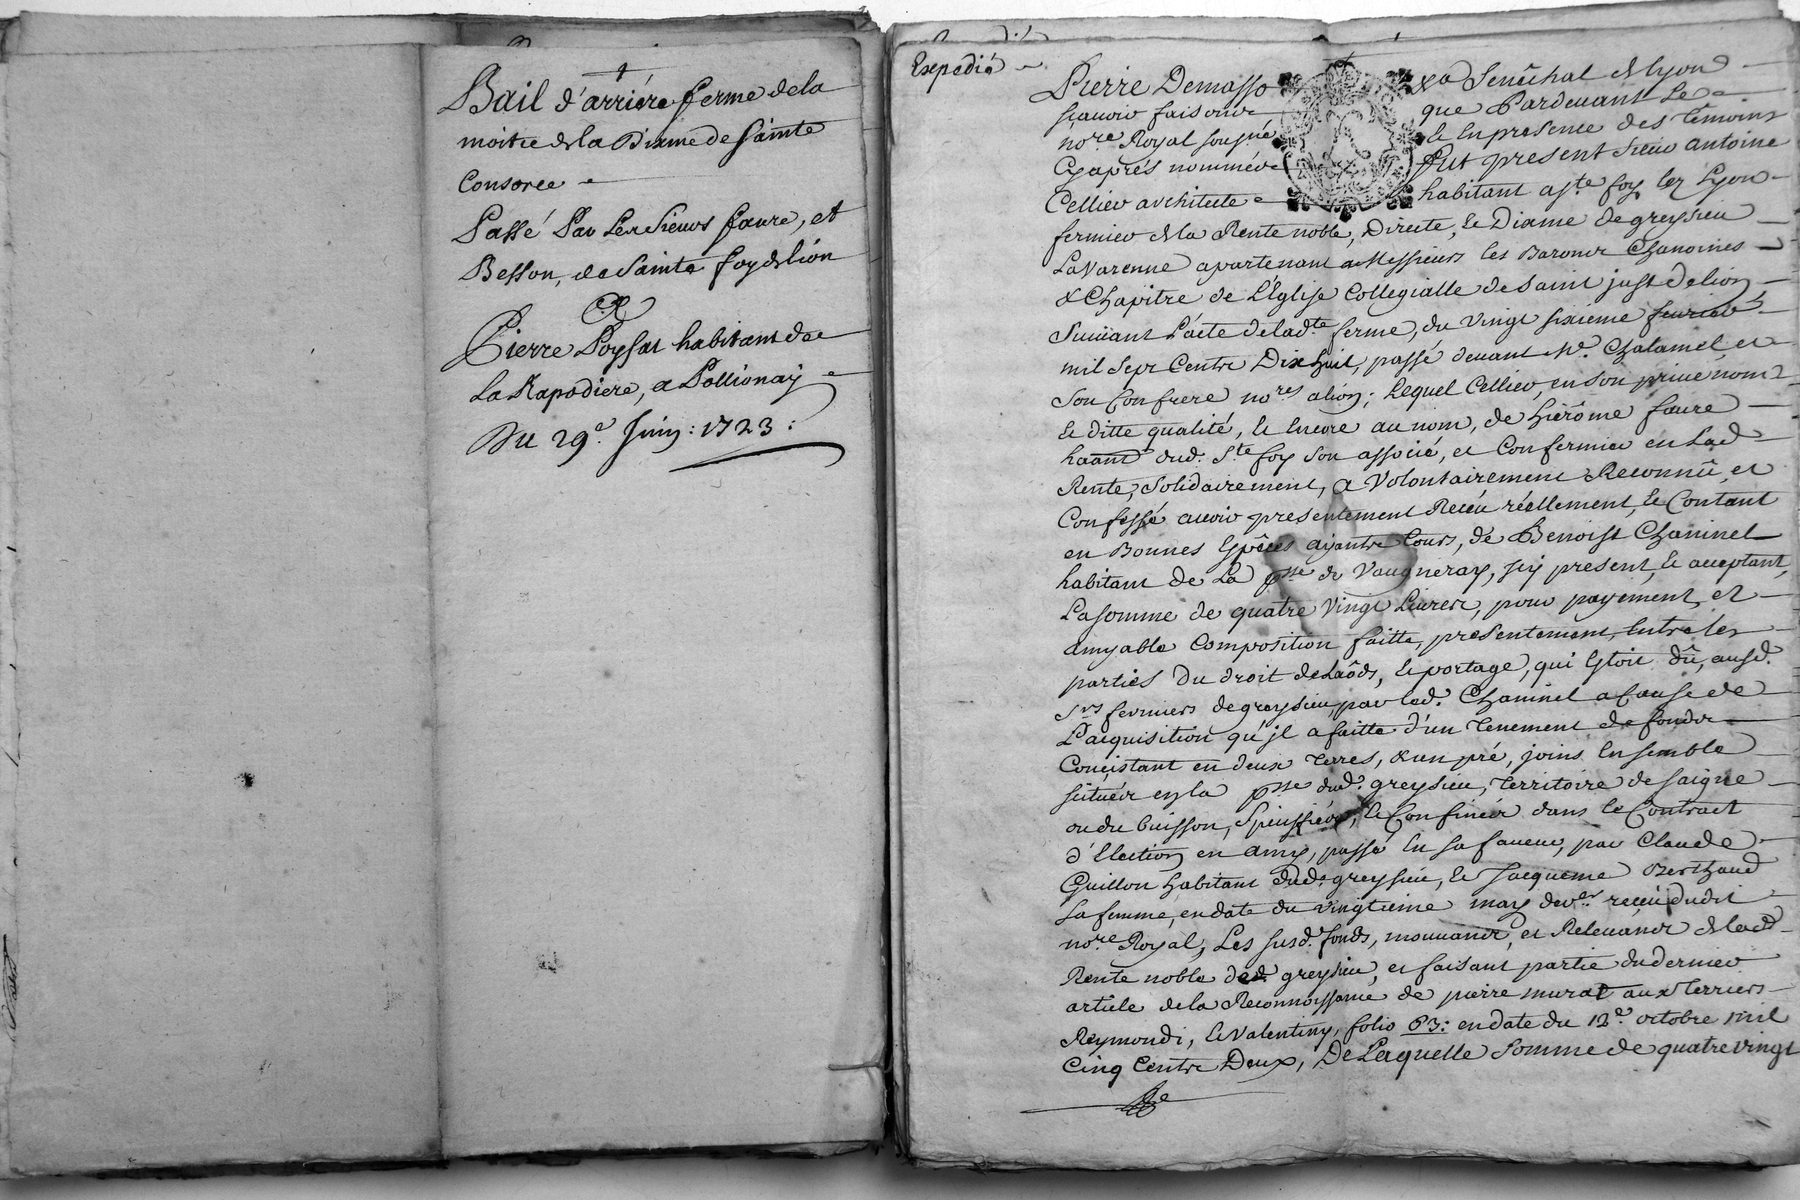 Bail d'arriére ferme de la
moitie de la Dixme de Sainte
Consorce
Passé Par Les Sieurs faure, et
Besson, de Sainte foy de lion
A
Pierre Poysat habitant de
La Rapodiere, a Pollionay
Du 29e. Juin: 1723:
Expedié
Pierre Demasso Senêchal de lyon
sçavoir faisons que Pardevant Le
nore. Royal sousné. & En presence des Temoins
Cyaprés nommés fut present sieur antoine
Cellier architecte habitant a ste foy lez Lyon
fermier de la Rente noble, Directe, & Dixme de greysieu
La Varenne apartenant a Messieurs les Barons Chanoines
& Chapitre de L'Eglise Collegialle de Saint just de lion
Suivant l'acte de ladte ferme, du Vingt sixieme fevrier
mil Sept Cents Dix huit, passé devant Me. Chalamel et
Son Confrere nores a lion; Lequel Cellier, en son privé nom
& ditte qualité, & Encore au nom, de hiérôme faure
haânt dud. Ste foy son associé, et Confermier en Lad.
Rente, Solidairement, a Volontairement Reconnû, et
Confessé avoir presentement Receu réellement, & Contant
en Bonnes Espêces ayants Cours, de Benoist Chaninel
habitant de La psse de Vaugneray, jcy present, & acceptant,
La somme de quatre Vingt Livres, pour payement, et
amyable Composition faitte, presentement, Entre les
parties Du droit de Laôds, & portage, qui Estoit dû, ausd.
Srs fermiers de greysieu, par led. Chaninel a Cause de
L'acquisition qu'jl a faitte d'un Tenement de fonds
Concistant en deux Terres, & un pré, joins Ensemble
scitués en la psse dud. greysieu, Territoire de saigne
ou du buisson, Speciffiés, & Confinés dans le Contract
d'Election en amy, passé En sa faveur, par Claude
Guillon habitant dud. greysieu, & Jacqueme Berthaud
Sa femme, en date du vingtieme may der. receu dudit
nore Royal, Les susd. fonds, mouvants, et Relevants de lad.
Rente noble de greysieu, et faisant partie du dernier
article de la Reconnoissance de pierre murat aux Terriers
Reymondi, & Valentiny, folio 63: en date du 12e. octobre mil
Cinq Cents Deux, De Laquelle Somme de quatre vingt